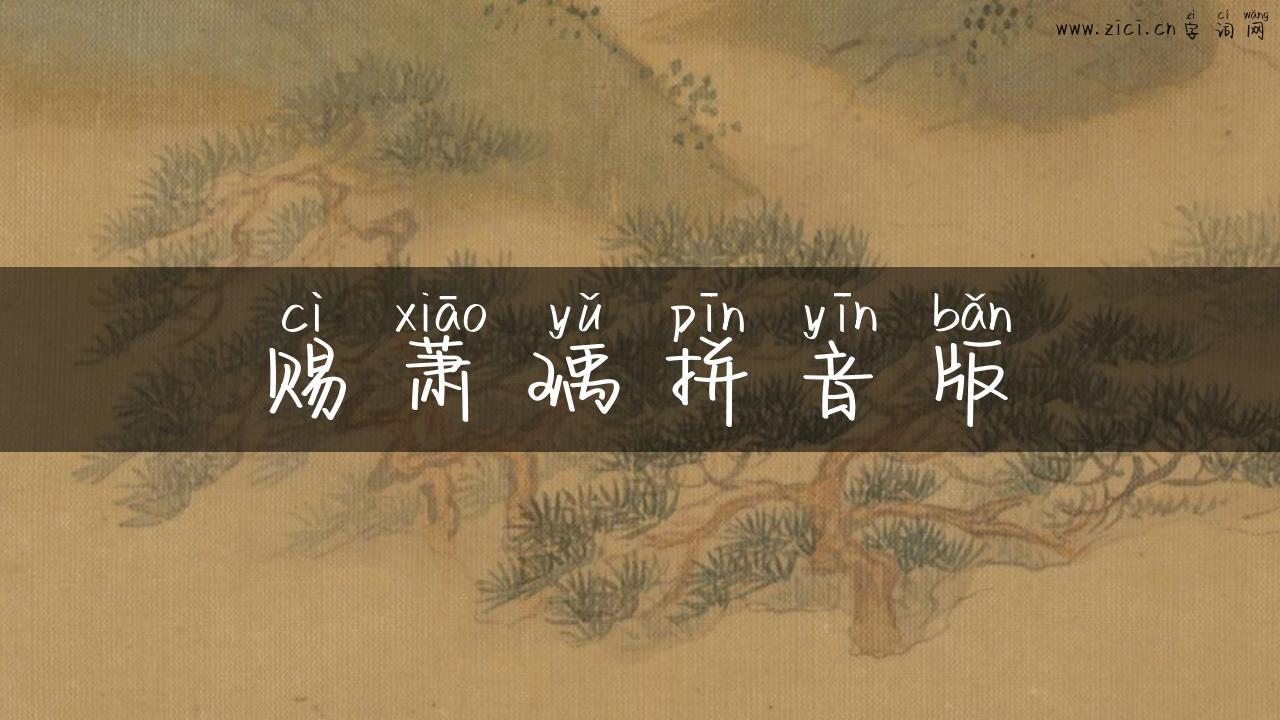 zì cí wǎng
www.zici.cn 字词网
cì xiāo yǔ pīn yīn bǎn
赐萧瑀拼音版